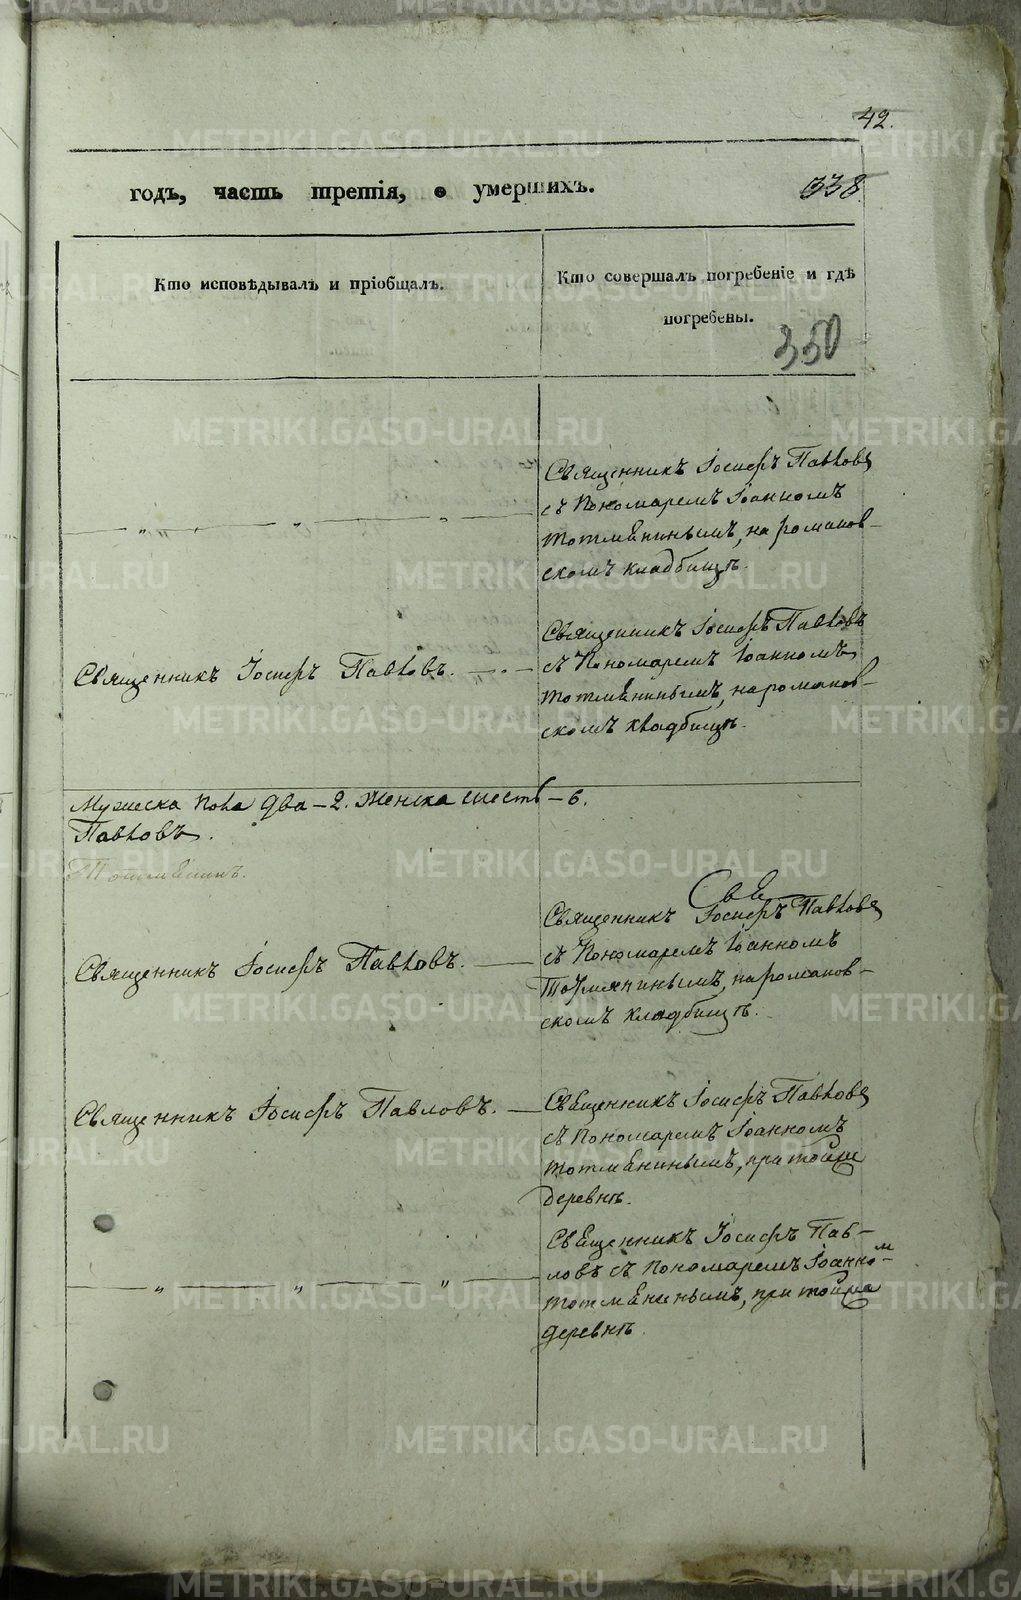 42.
годъ, часть третія, о умершихъ.
338
Кто исповѣдывалъ и пріобщалъ.
Кто совершалъ погребеніе и гдѣ
погребены.
350
Священникъ Іосифъ Павловъ
съ Пономаремъ Іоанномъ
тотмѣнинымъ, на романов-
скомъ кладбищѣ.
— „ — „ — „ —
Священникъ Іосифъ Павловъ.
Священникъ Іосифъ Павловъ
съ Пономаремъ Іоанномъ
тотмѣнинымъ, на романов-
скомъ кладбищѣ.
Мужеска пола два – 2. женска шесть – 6.
Павловъ.
Тотмѣнинъ.
Священникъ Іосифъ Павловъ.
Священникъ Іосифъ Павловъ
съ Пономаремъ Іоанномъ
Тотмянинымъ, на романов-
скомъ кладбищѣ.
Священникъ Іосифъ Павловъ.
Священникъ Іосифъ Павловъ
съ Пономаремъ Іоанномъ
тотмѣнинымъ, при тойже
деревнѣ.
— „ — „ — „ —
Священникъ Іосифъ Пав-
ловъ съ пономаремъ Іоанном
тотмѣнинымъ, при тойже
деревнѣ.
METRIKI.GASO-URAL.RU